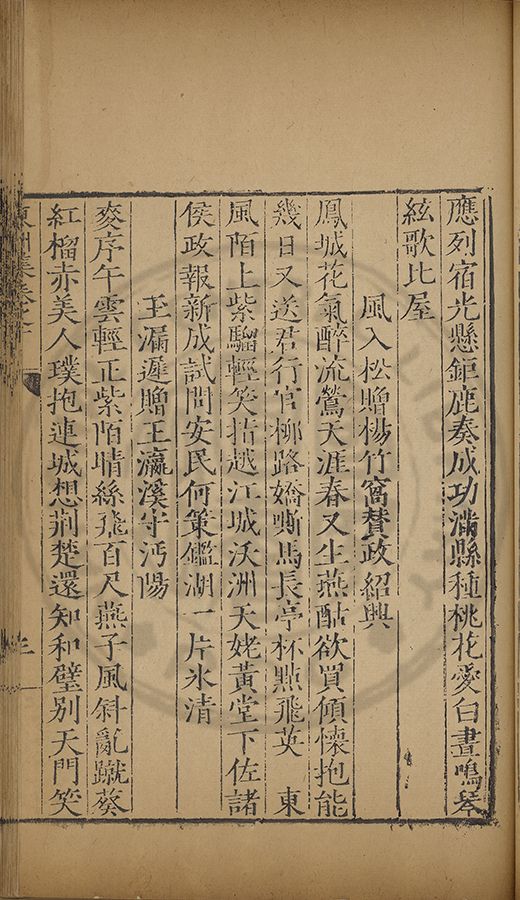 應列宿光懸鉅鹿奏成功滿縣種桃花愛白晝鳴琴
絃歌比屋
風入松贈楊竹窩贊政紹興
鳳城花氣醉流鶯天涯春又生燕酤欲買傾懷抱能
幾日又送君行官柳路嬌嘶馬長亭杯點飛英　東
風陌上紫騮輕笑指越江城沃洲天姥黃堂下佐諸
侯政報新成試問安民何策鑑湖一片氷清
玉漏遲贈王瀛溪守沔陽
麥序午雲輕正紫陌晴絲飛百尺燕子風斜亂蹴葵
紅榴赤美人璞抱連城想荆楚還知和璧別天門笑